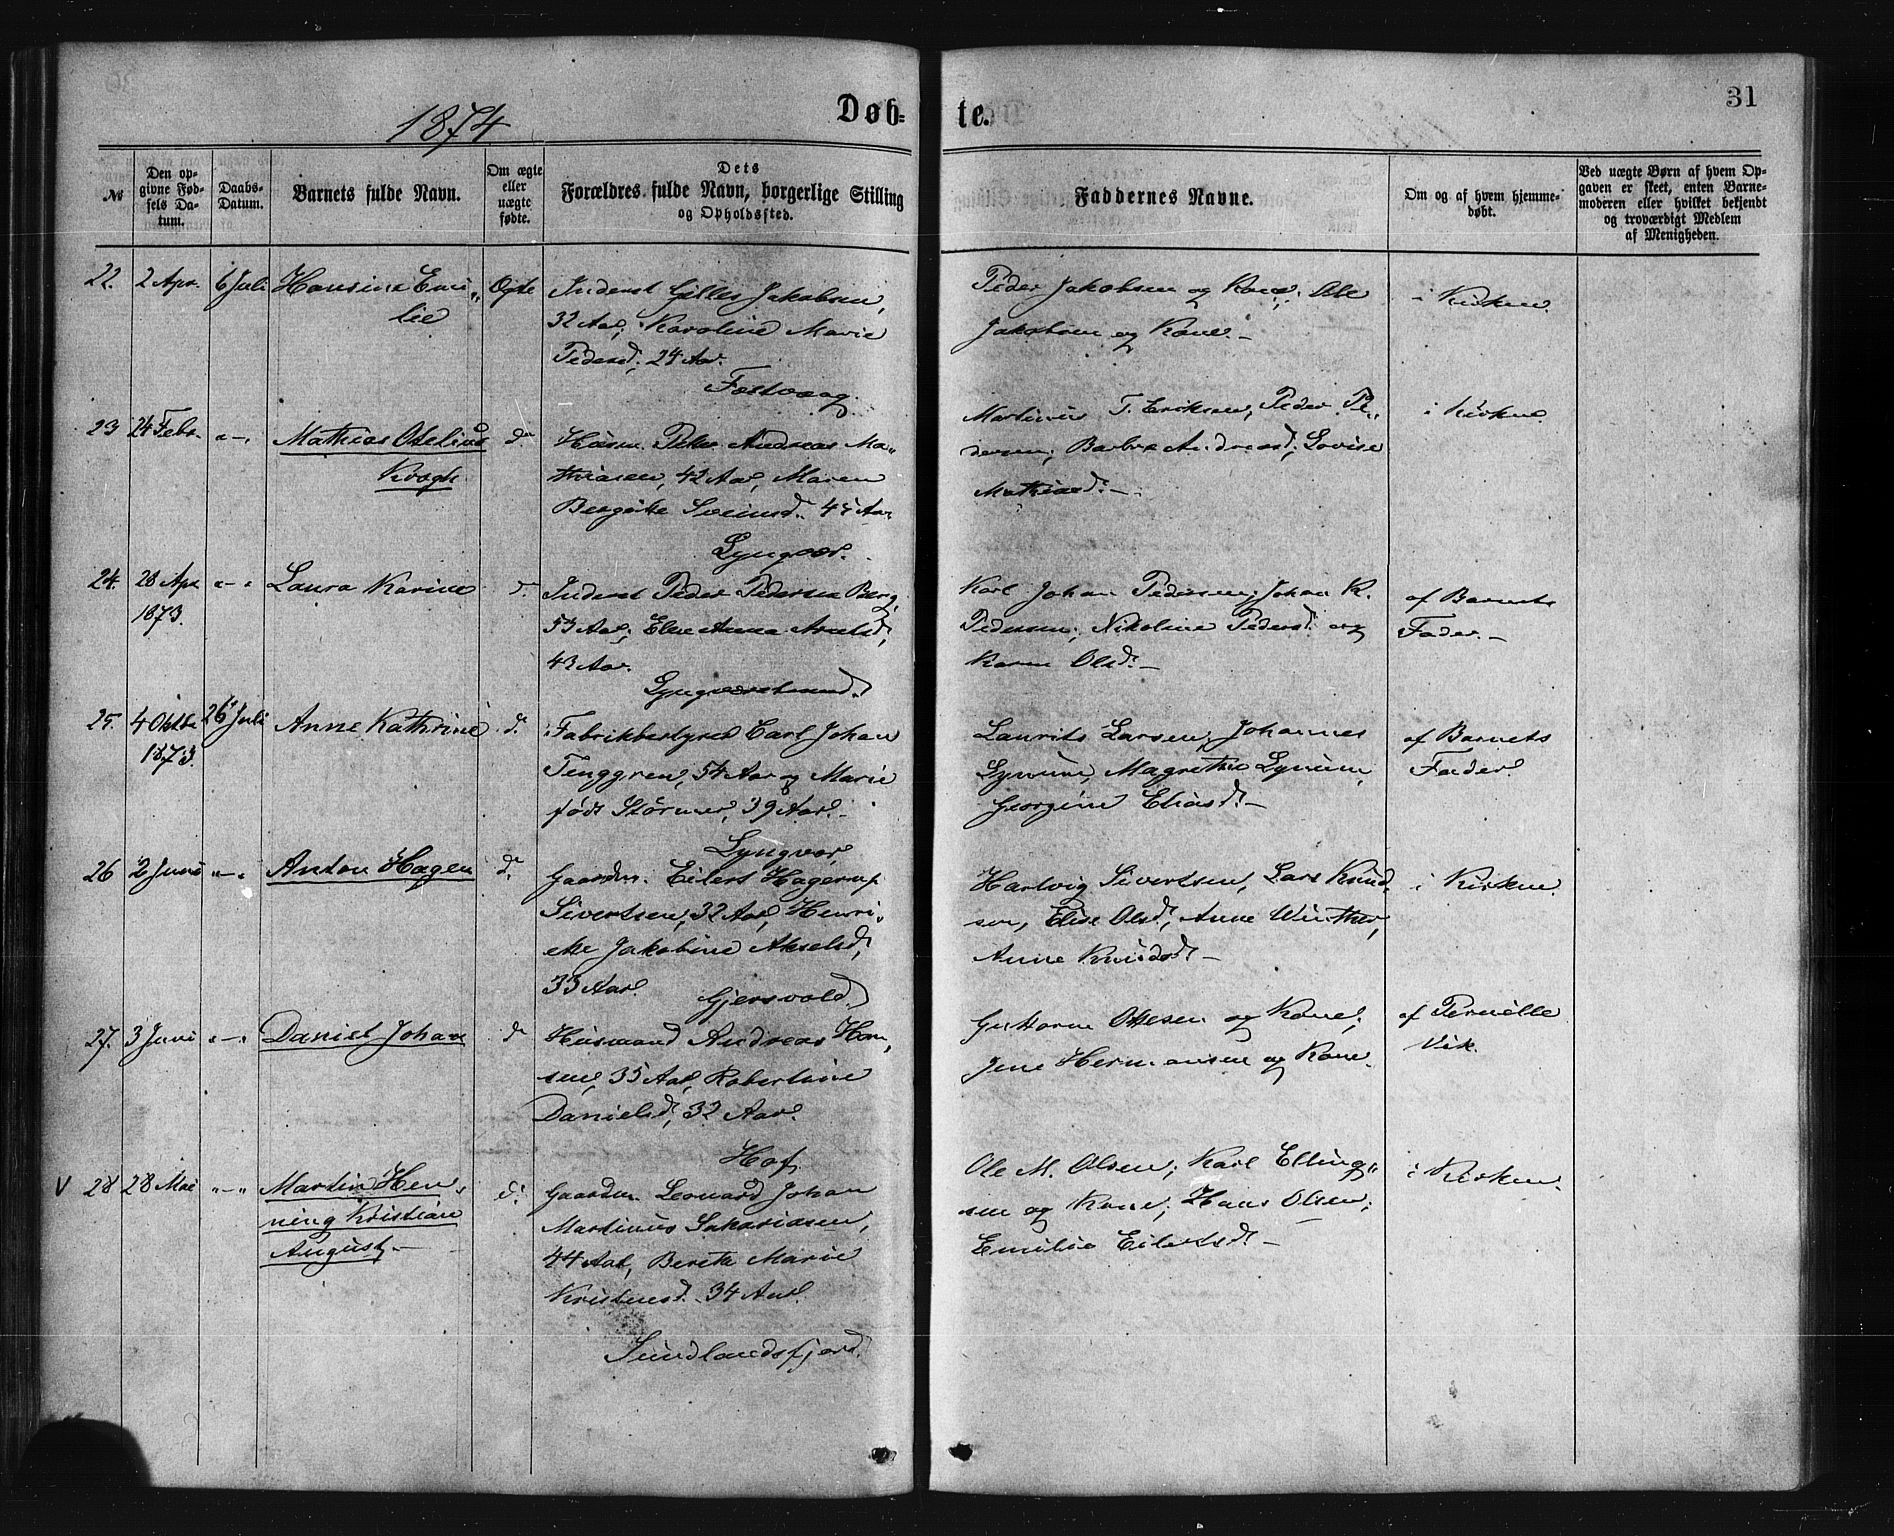 1874
Døb-
te.
31
№
Den op-
givne Fød-
sels Da-
tum.
Daabs-
Datum.
Barnets fulde Navn.
Om ægte
eller
uægte
fødte.
Dets
Forældres fulde Navn, borgerlige Stilling
og Opholdssted.
Faddernes Navne.
Om og af hvem hjemme-
døbt.
Ved uægte Børn af hvem Op-
gaven er skeet, enten Barne-
moderen eller hvilket bekjendt
og troværdigt Medlem
af Menigheden.
22. 2 Apr. 6 Juli Hansine Emi„
lie
Ægte
Inderst Gilles Jakobsen,
32 Aar, Karoline Marie
Pedersd. 24 Aar.
Festvaag.
Peder Jakobsen og Kone; Ole
Jakobsen og Kone.–
i Kirken.
23 24 Febr. „–„ Mathias Otelius
Krogh
do
Husm. Peder Andreas Ma„
thiasen, 42 Aar, Maren
Bergitte Sveinsd. 45 Aar
Lyngvær.
Martinus T. Eriksen, Peder Pe„
dersen; Barbra Andreasd; Lovise
Mathiasd.–
i Kirken.
24. 28 Apr.
1873.
„–„ Laura Karine
do
Inderst Peder Pedersen Berg,
53 Aar, Elen Anna Arntsd,
43 Aar.
Lyngværstrand.
Karl Johan Pedersen; Johan K.
Pedersen; Nikoline Pedersd. og
Karen Olsd.–
af Barnets
Fader.–
25. 4 Oktbr
1873.
26 Juli Anne Kathrine
d.
Fabrikbestyrer Carl Johan
Tenggren, 54 Aar og Marie
født Størmer, 39 Aar.–
Lyngvær,
Laurits Larsen, Johannes
Lynum, Magrethe Lynum,
Georgine Eliasd.–
af Barnets
Fader.
26 2 Juni „–„ Anton Hagen
d.
Gaardm. Eilert Hagerup
Sivertsen, 32 Aar, Henri„
ette Jakobine Akselsd,
33 Aar.
Gjersvold.
Hartvig Sivertsen, Lars Knud„
sen, Elise Olsd, Anne Winther,
Anne Knudsd.–
i Kirken.
27. 3 Juni „–„ Daniel Johan
do
Husmand Andreas Han„
sen, 35 Aar, Robertine
Danielsd, 32 Aar.
Hof.
Guttorm Ottesen og Kone;
Jens Hermansen og Kone.
af Pernille
Vik.
V 28 28 Mai „–„ Martin Hen„
ning Kristian
August.–
d.
Gaardm. Leonard Johan
Martinus Sakariasen,
44 Aar, Berita Marie
Kristensd. 34 Aar.
Sundlandsfjord.
Ole M. Olsen; Karl Elling„
sen og Kone; Hans Olsen;
Emilie Eilertsd.–
i Kirken.